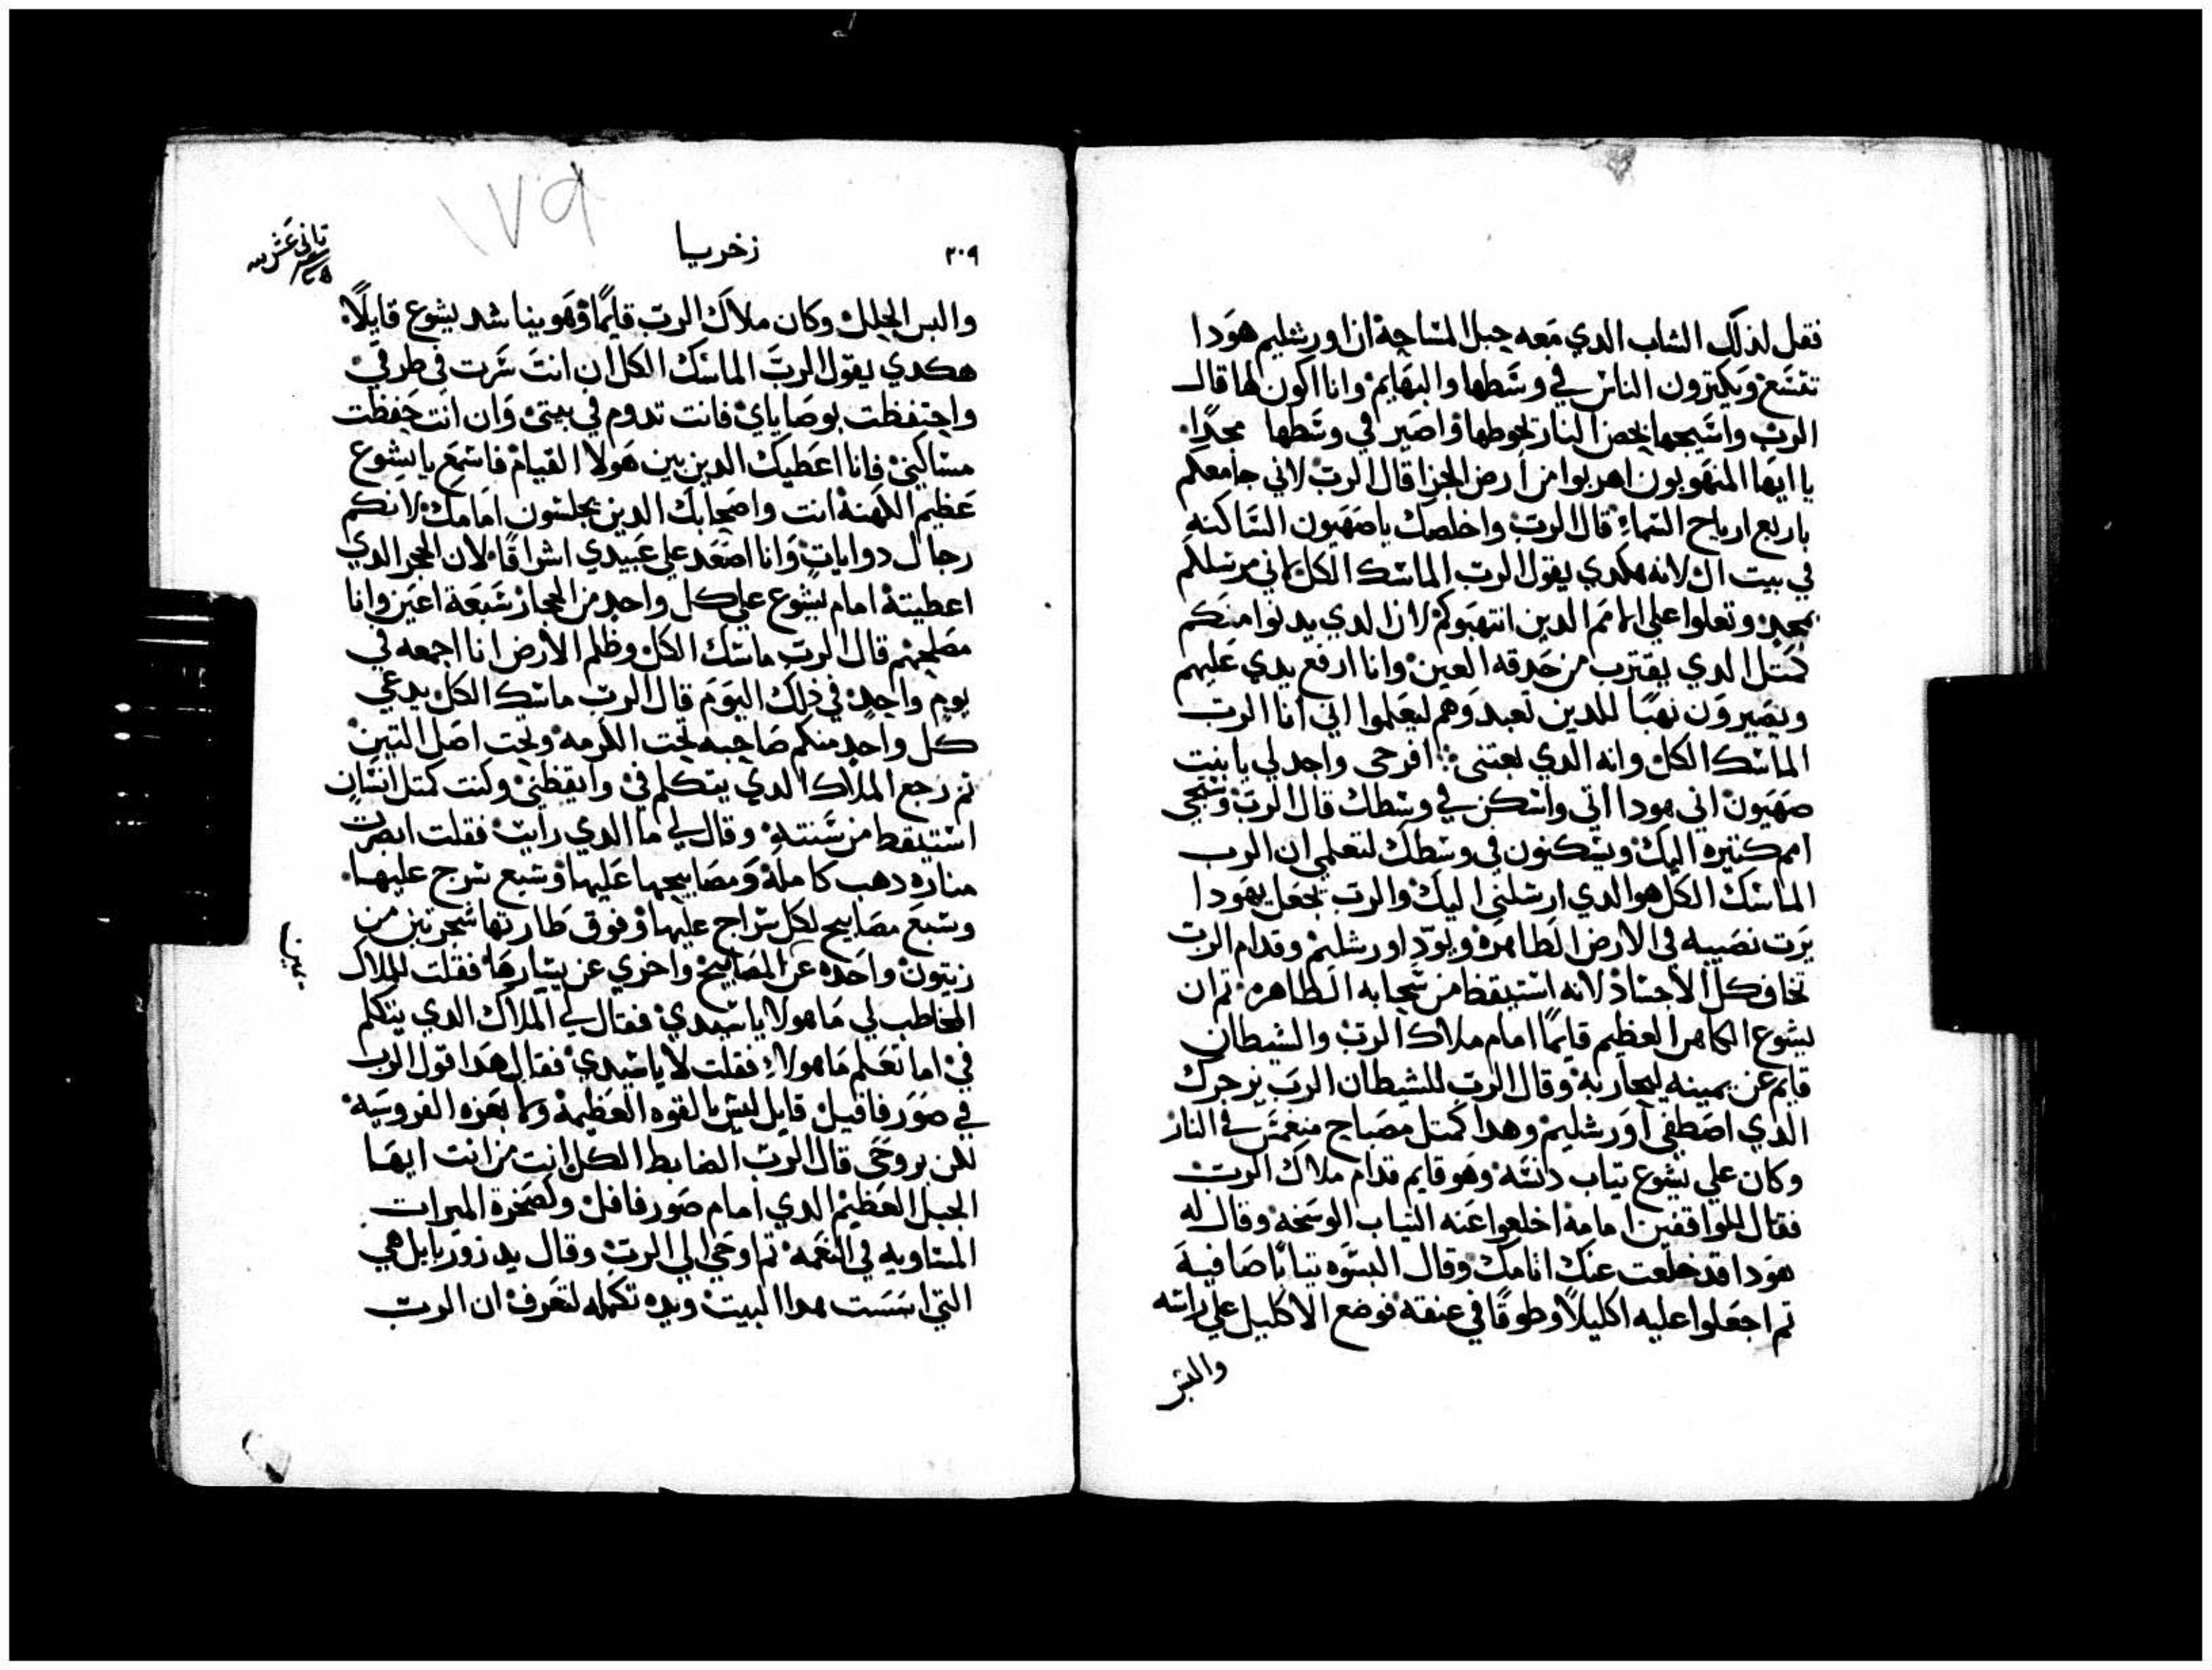 فقل لذلك الشاب الدي معه حبل المساحة ان اورشليم هودا
تتسع ويكترون الناس في وسطها والبهايم وانا اكون لها قال
الرب واسيجها بحصن النار تحوطها واصير في وسطها مجدا
يا ايها المنهوبون اهربوا من ارض الجزا قال الرب لاني جامعكم
باربع ارياح السماء قال الرب واخلصك يا صهيون الساكنه
في بيت ال لانه هكدي يقول الرب الماسك الكل اني مرسلكم
بمجد وتعلوا علي الامم الدين انتهبوكم لان الدي يدنوا منكم
كمتل الدي يقترب من حدقه العين وانا ارفع يدي عليهم
ويصيرون نهبا للدين تعبدوهم ليعلموا اني انا الرب
الماسك الكل وانه الدي بعتني افرحي واجدلي يا بنت
صهيون اني هودا اتي واسكن في وسطك قال الرب وتجي
امم كتيره اليك ويسكنون في وسطك لتعلمي ان الرب
الماسك الكل هو الدي ارسلني اليك والرب يجعل يهودا
يرت نصيبه في الارض الطاهره ويود اورشليم وقدام الرب
تخاف كل الاجساد لانه استيقظ من سحابه الطاهره تم ان
يشوع الكاهن العظيم قايما امام ملاك الرب والشيطان
قايم عن يمينه ليحاربه وقال الرب للشيطان الرب يزجرك
الدي اصطفي اورشليم وهدا كمتل مصباح منغمس في النار
وكان علي يشوع تياب دنسه وهو قايم قدام ملاك الرب
فقال للواقفين امامه اخلعوا عنه التياب الوسخه وقال له
هودا قد خلعت عنك اتامك وقال البسوه تيابا صافية
تم اجعلوا عليه اكليلا وطوقا في عنقه فوضع الاكليل علي راسه
والبس
٢٠٩
زخريا
تاني عشر
١٧٩
والبس الحلل وكان ملاك الرب قايما وهو يناشد يشوع قايلا
هكدي يقول الرب الماسك الكل ان انت سرت في طرقي
واحتفظت بوصاياي فانت تدوم في بيتي وان انت حفظت
مساكني فانا اعطيك الدين بين هولا القيام فاسمع يا يشوع
عظيم الكهنة انت واصحابك الدين يجلسون امامك لانكم
رجال دوايات وانا اصعد علي عبيدي اشراقا لان الحجر الدي
اعطيته امام يشوع علي كل واحد من الحجار سبعة اعين وانا
مصلحهم قال الرب ماسك الكل وظلم الارض انا اجمعه في
يوم واحد في ذلك اليوم قال الرب ماسك الكل يدعي
كل واحد منكم صاحبه تحت الكرمه وتحت اصل التين
تم رجع الملاك الدي يتكلم في وايقظني وكنت كمتل انسان
استيقط من سنته وقال لي ما الدي رايت فقلت ابصرت
مناره دهب كاملة ومصابيحها عليها وسبع سرج عليها
وسبع مصابيح لكل سراج عليها وفوق طارتها شجرتين من
زيتون واحده عن المصابيح واخري عن يسارها فقلت للملاك
يمين
المخاطب لي ما هولا يا سيدي فقال لي الملاك الدي يتكلم
في اما تعلم ما هولاء فقلت لا يا سيدي فقال هدا قول الرب
في صورفافيل قايل ليس بالقوه العظيمه ولا بعزه الفروسيه
لكن بروحي قال الرب الضابط الكل انت من انت ايها
الجبل العظيم الدي امام صورفافل ولصخرة الميرات
المساويه في النعمه تم اوحي الي الرب وقال يد زوربابل هي
التي اسست هدا البيت ويده تكمله لتعرف ان الرب